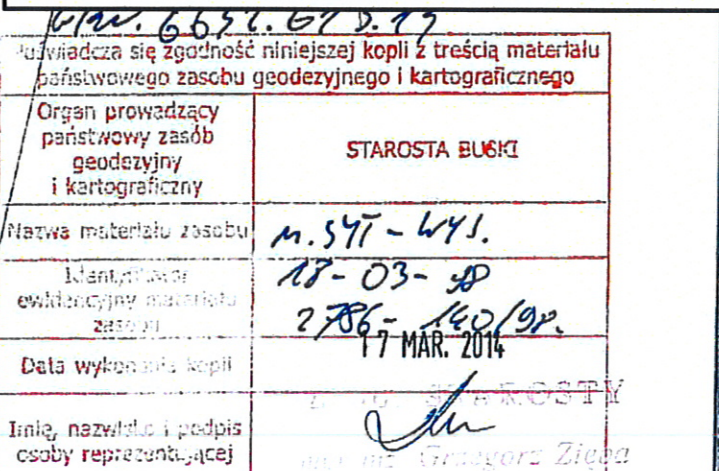 Poświadcza się zgodność niniejszej kopii z treścią materiału
państwowego zasobu geodezyjnego i kartograficznego
Organ prowadzący
państwowy zasób
geodezyjny
i kartograficzny
STAROSTA BUSKI
Nazwa materiału zasobu
m. SYT - WYS.
Identyfikator
ewidencyjny materiału
zasobu
18-03-
2786-140/98.
Data wykonania kopii
17 MAR. 2014
STAROSTY
Imię, nazwisko i podpis
osoby reprezentującej
Grzegorz Zięba